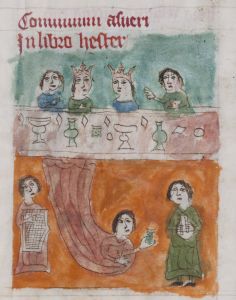 Conuiuium asueri
In libro hester